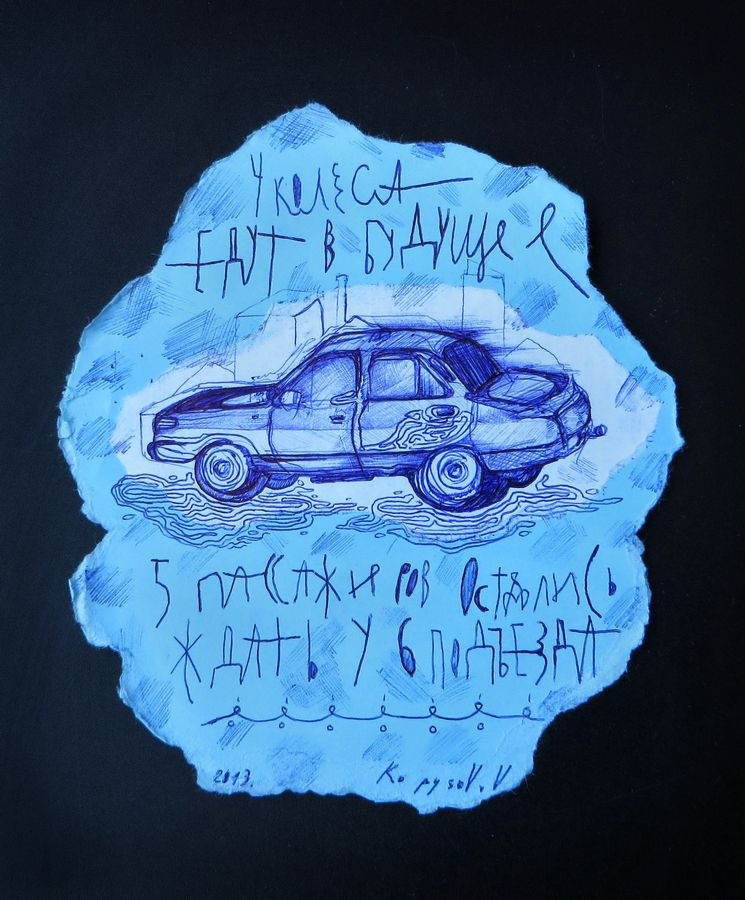 4 КОЛЕСА
ЕДУТ В БУДУЩЕЕ
5 ПАССАЖИРОВ ОСТАЛИСЬ
ЖДАТЬ У 6 ПОДЪЕЗДА
2013.